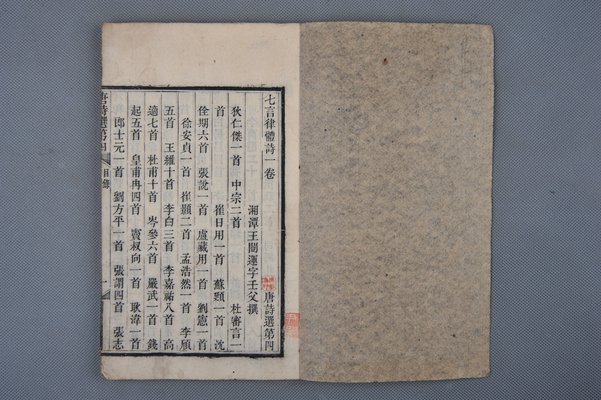 七言律體詩一卷 唐詩選第四
湘潭王闓運字壬父撰
狄仁傑一首 中宗二首 杜審言一
首 崔日用一首 蘇頲一首 沈
佺期六首 張說一首 盧藏用一首 劉憲一首
徐安貞一首 崔顥二首 孟浩然一首 李頎
五首 王維十首 李白三首 李嘉祐八首 高
適七首 杜甫十首 岑參六首 嚴武一首 錢
起五首 皇甫冉四首 竇叔向一首 耿湋一首
郎士元一首 劉方平一首 張謂四首 張志
唐詩選第四 目錄 一